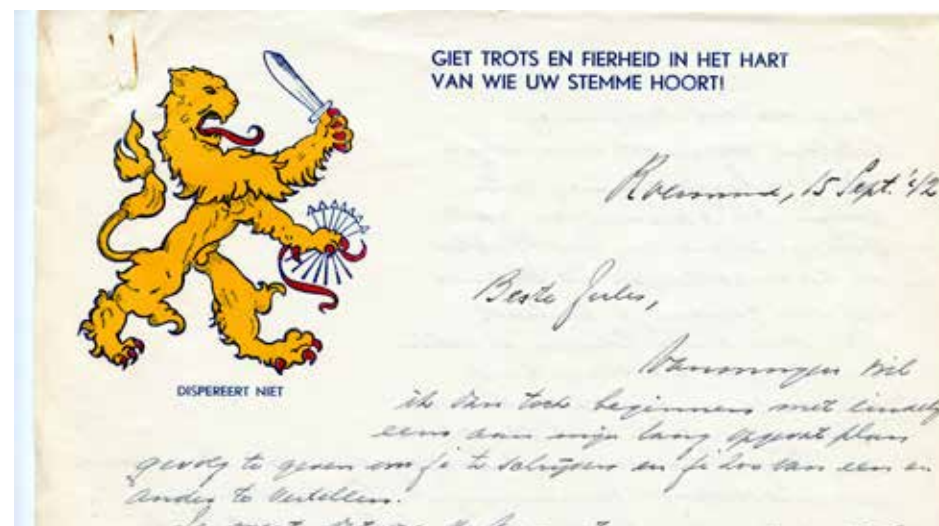 GIET TROTS EN FIERHEID IN HET HART
VAN WIE UW STEMME HOORT!
Roermond, 15 Sept. '42
Beste Jules,
DISPEREERT NIET
Vanmorgen wil
ik dan toch beginnen met eindelijk
eens aan mijn lang opgevat plan
gevolg te geven om je te schrijven en je zoo van een en
ander te vertellen.